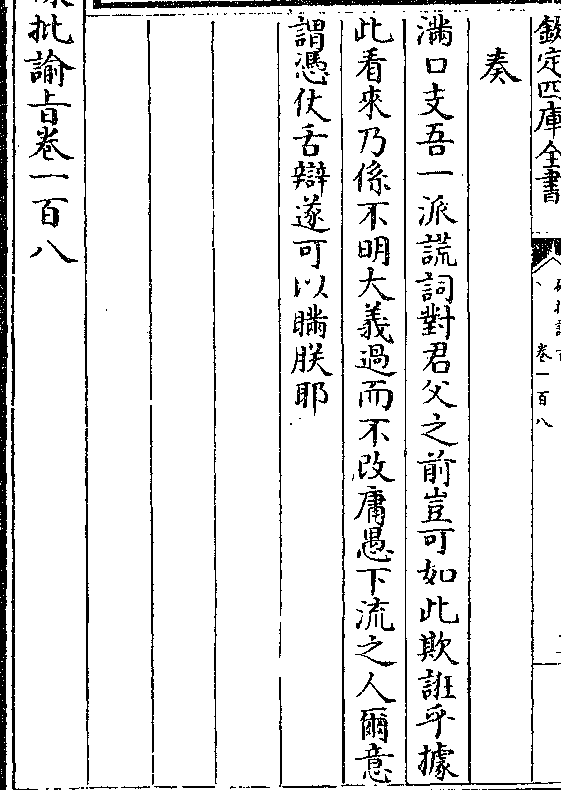 欽定四庫全書
卷一百八
奏
滿口支吾一派謊詞對君父之前豈可如此欺誑乎據
此看來乃係不明大義過而不改庸愚下流之人爾意
謂憑仗舌辯遂可以瞞朕耶
批諭旨卷一百八